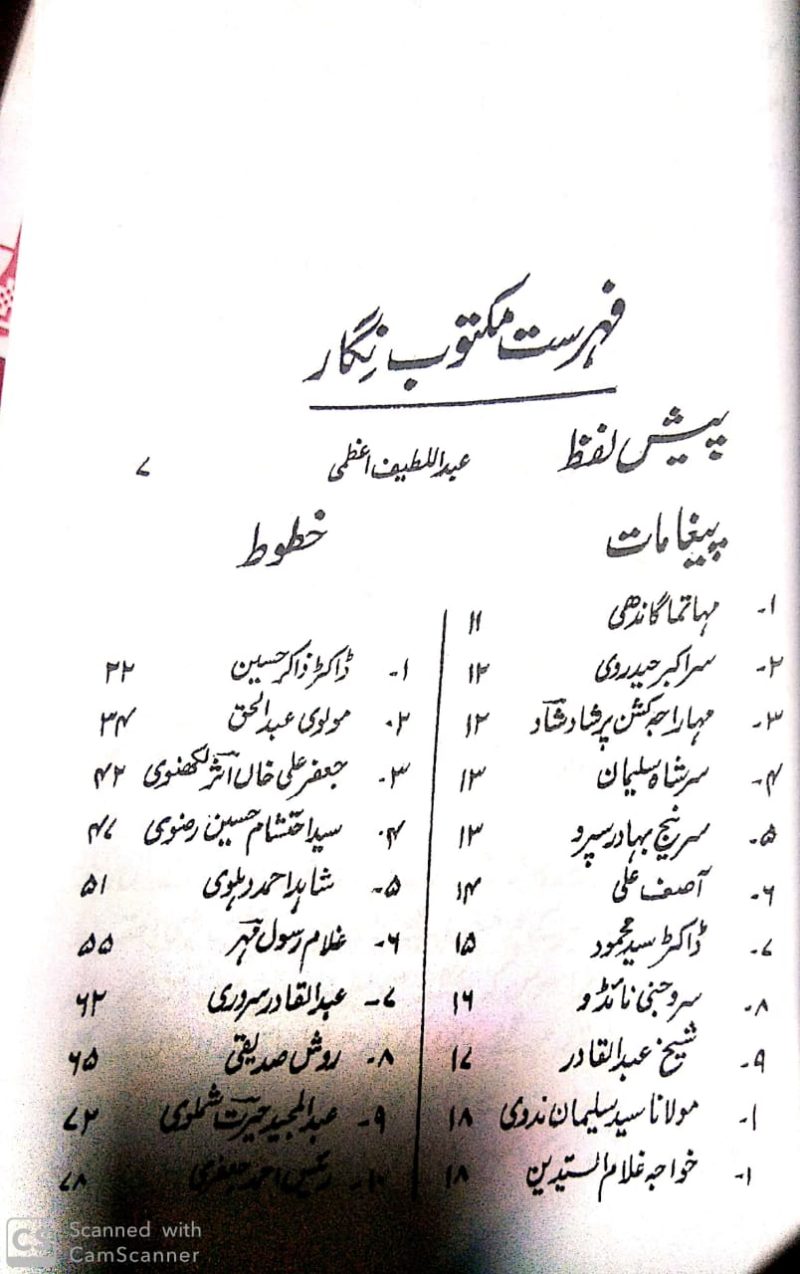 فہرست مکتوب نگار
پیش لفظ عبداللطیف اعظمی ۷
پیغامات
۱- مہاتما گاندھی ۱۱
۲- سر اکبر حیدری ۱۲
۳- مہاراجہ کشن پرشاد شاد ۱۲
۴- سر شاہ سلیمان ۱۳
۵- سر تیج بہادر سپرو ۱۳
۶- آصف علی ۱۴
۷- ڈاکٹر سید محمود ۱۵
۸- سروجنی نائڈو ۱۶
۹- شیخ عبدالقادر ۱۷
۱- مولانا سید سلیمان ندوی ۱۸
۱- خواجہ غلام السیدین ۱۸
خطوط
۱- ڈاکٹر ذاکر حسین ۲۲
۲- مولوی عبدالحق ۳۴
۳- جعفر علی خاں اثر لکھنوی ۴۲
۴- سید احتشام حسین رضوی ۴۷
۵- شاہد احمد دہلوی ۵۱
۶- غلام رسول مہر ۵۵
۷- عبدالقادر سروری ۶۲
۸- روش صدیقی ۶۵
۹- عبدالمجید حیرت شملوی ۷۲
۱۰- رئیس احمد جعفری ۷۸
CS Scanned with
CamScanner